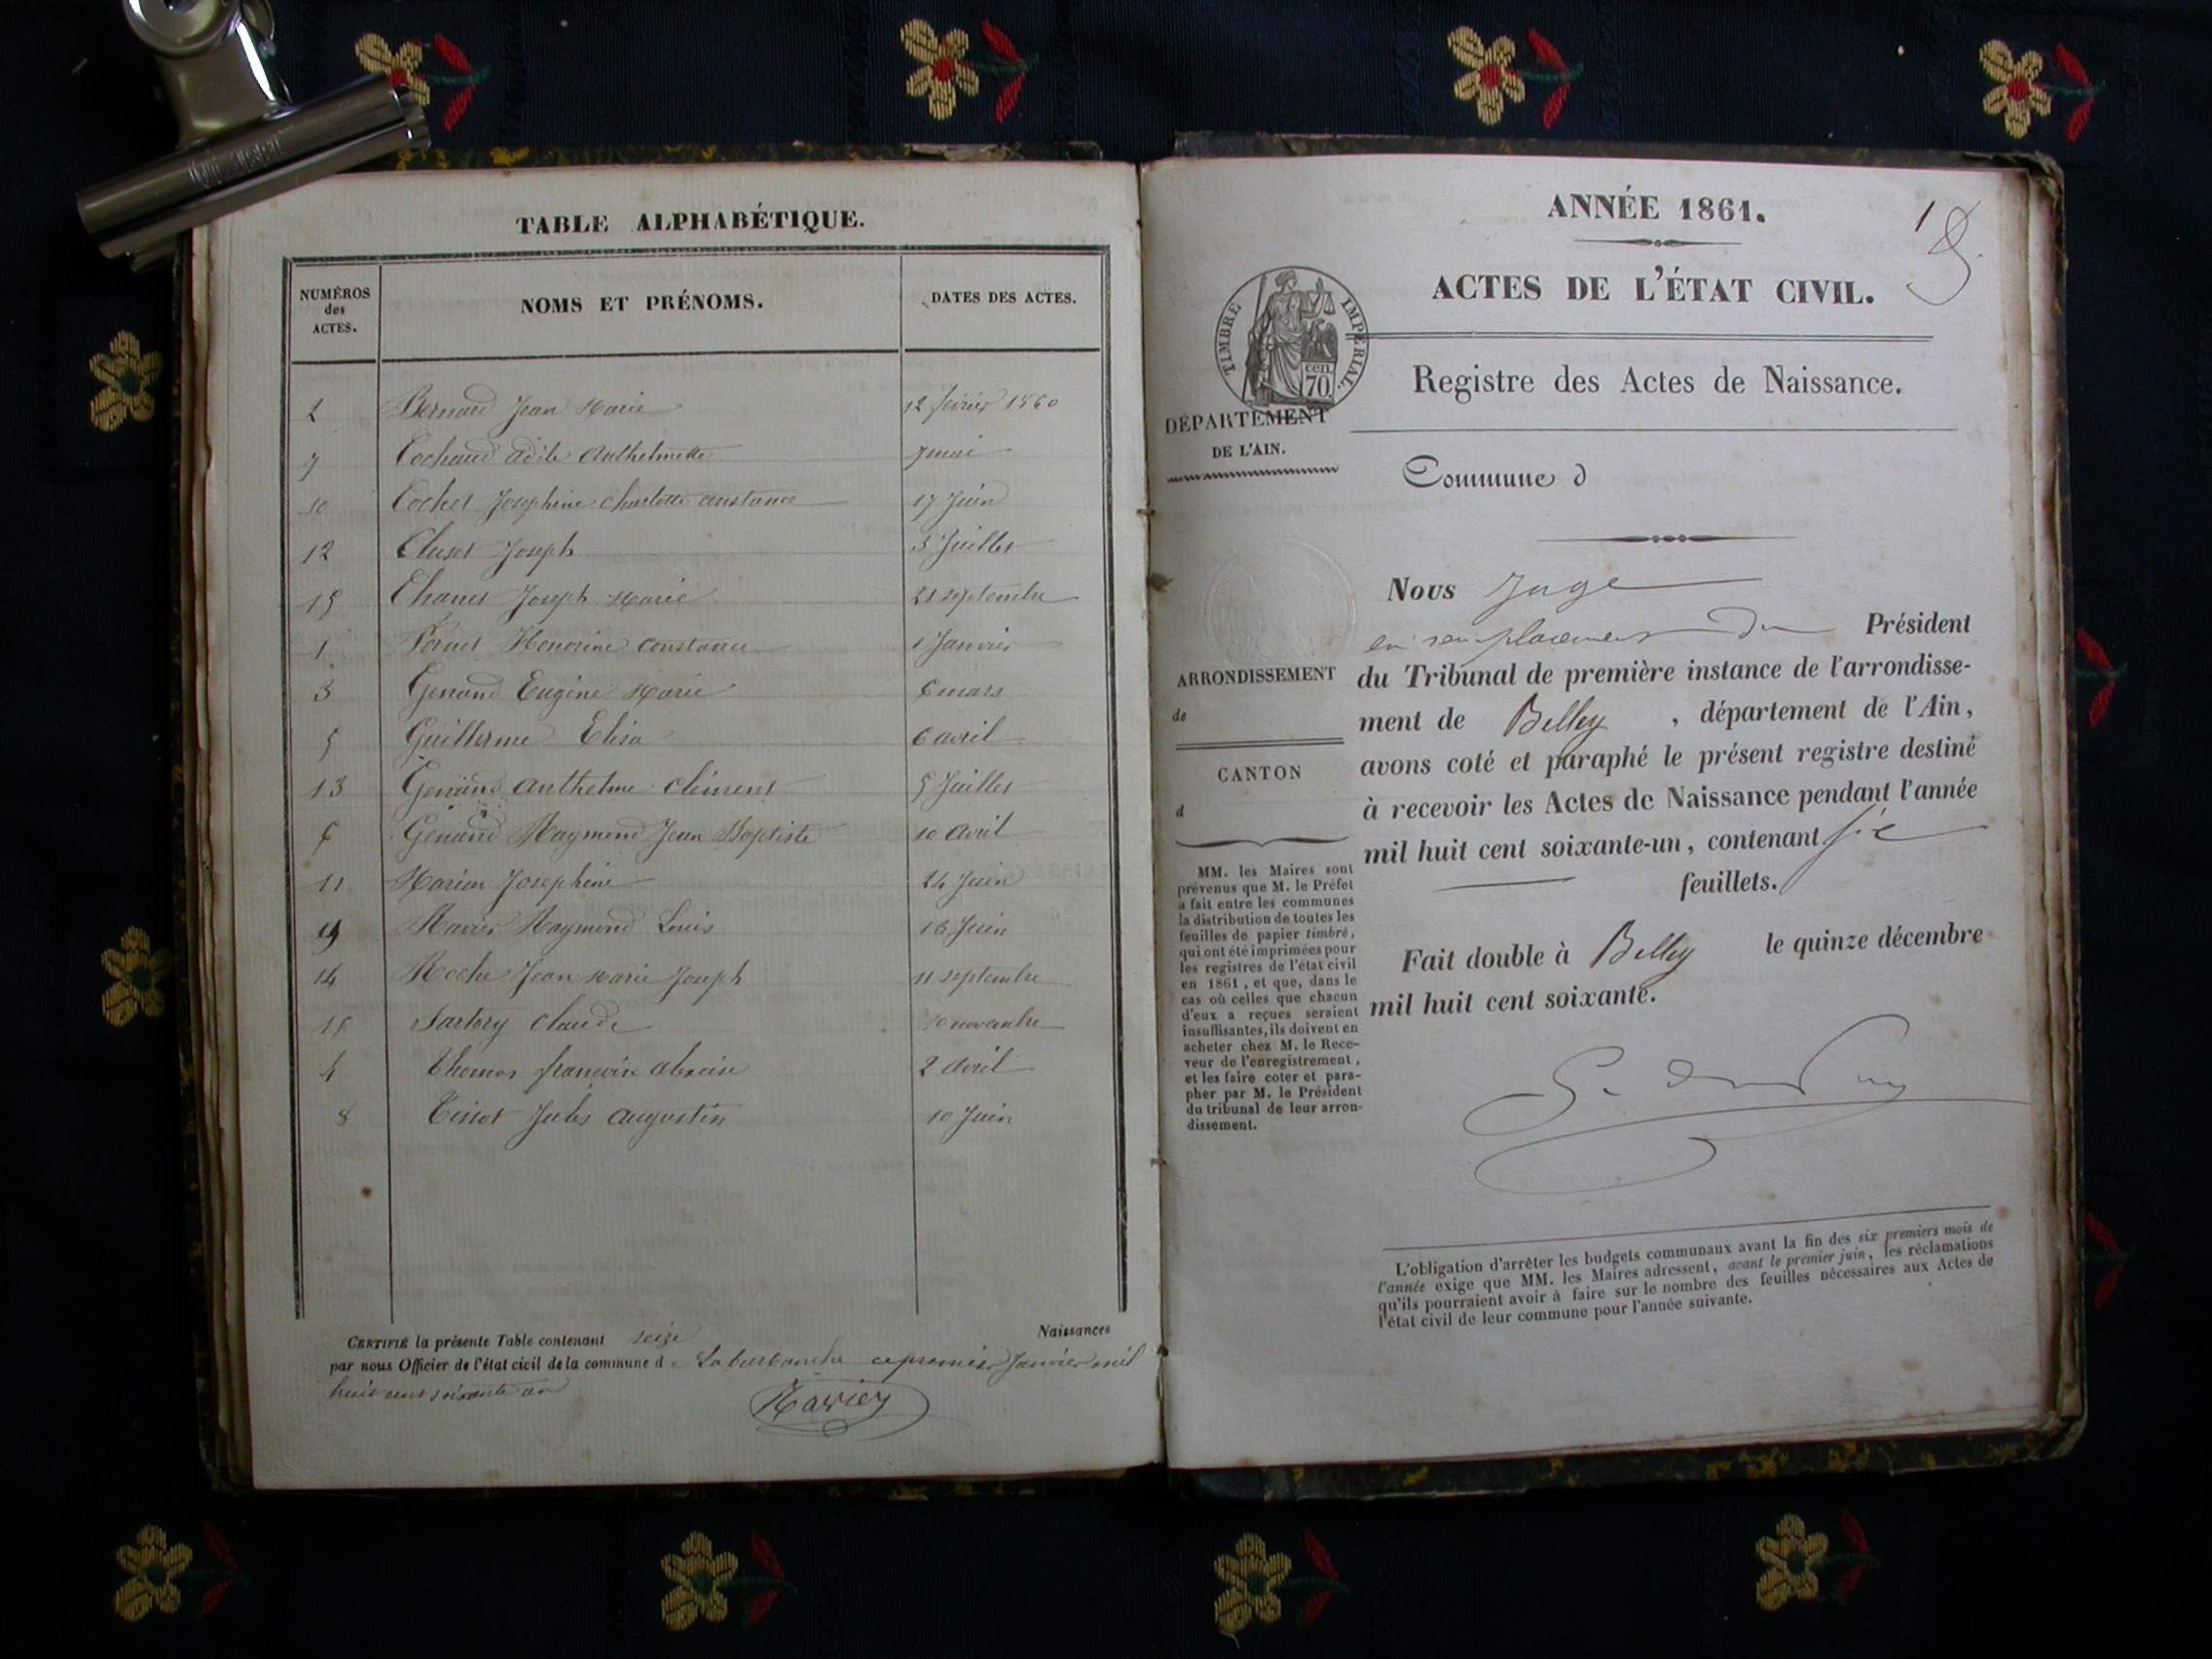 TABLE ALPHABÉTIQUE.
NUMÉROS
des
ACTES.
NOMS ET PRÉNOMS.
DATES DES ACTES.
2 Bernard Jean Marie 12 février 1860
7 Cochaud adèle Anthelmette 7 mai
10 Cochet Josephine Charlotte Constance 17 Juin
12 Clusel Joseph 3 Juillet
15 Chanel Joseph Marie 21 septembre
1 Honorine Constance 1 Janvier
3 Genand Eugène Marie 6 mars
5 Guillerme Elisa 6 avril
13 Genand Anthelme Clément 5 Juillet
6 Genand Raymond Jean Baptiste 10 Avril
11 Marion Josephine 24 Juin
9 Ravier Raymond Louis 16 Juin
14 Roche Jean Marie Joseph 11 septembre
16 Sartory Claude novembre
4 Thomas 2 Avril
8 Tissot Jules Augustin 10 Juin
CERTIFIÉ la présente Table contenant seize Naissances
par nous Officier de l'état civil de la commune de Laburbanche ce premier Janvier mil
huit cent soixante un
Ravier
ANNÉE 1861.
1
ACTES DE L'ÉTAT CIVIL.
TIMBRE IMPÉRIAL.
cen.
70
Registre des Actes de Naissance.
DÉPARTEMENT
DE L'AIN.
Commune d
Nous Juge
en remplacement du Président
du Tribunal de première instance de l'arrondisse-
ment de Belley , département de l'Ain,
avons coté et paraphé le présent registre destiné
à recevoir les Actes de Naissance pendant l'année
mil huit cent soixante-un, contenant six
feuillets.
Fait double à Belley le quinze décembre
mil huit cent soixante.
ARRONDISSEMENT
de
CANTON
d
MM. les Maires sont
prévenus que M. le Préfet
a fait entre les communes
la distribution de toutes les
feuilles de papier timbré,
qui ont été imprimées pour
les registres de l'état civil
en 1861, et que, dans le
cas où celles que chacun
d'eux a reçues seraient
insuffisantes, ils doivent en
acheter chez M. le Rece-
veur de l'enregistrement,
et les faire coter et para-
pher par M. le Président
du tribunal de leur arron-
dissement.
L'obligation d'arrêter les budgets communaux avant la fin des six premiers mois de
l'année exige que MM. les Maires adressent, avant le premier juin, les réclamations
qu'ils pourraient avoir à faire sur le nombre des feuilles nécessaires aux Actes de
l'état civil de leur commune pour l'année suivante.